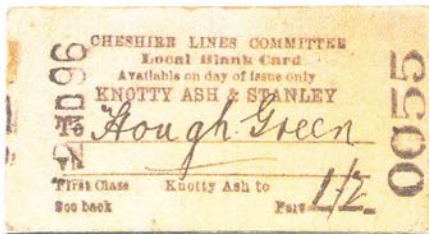 CHESHIRE LINES COMMITTEE
Local Blank Card
Available on day of issue only
KNOTTY ASH & STANLEY
To Hough Green
First Class Knotty Ash to
See back Fare 1/2
0055